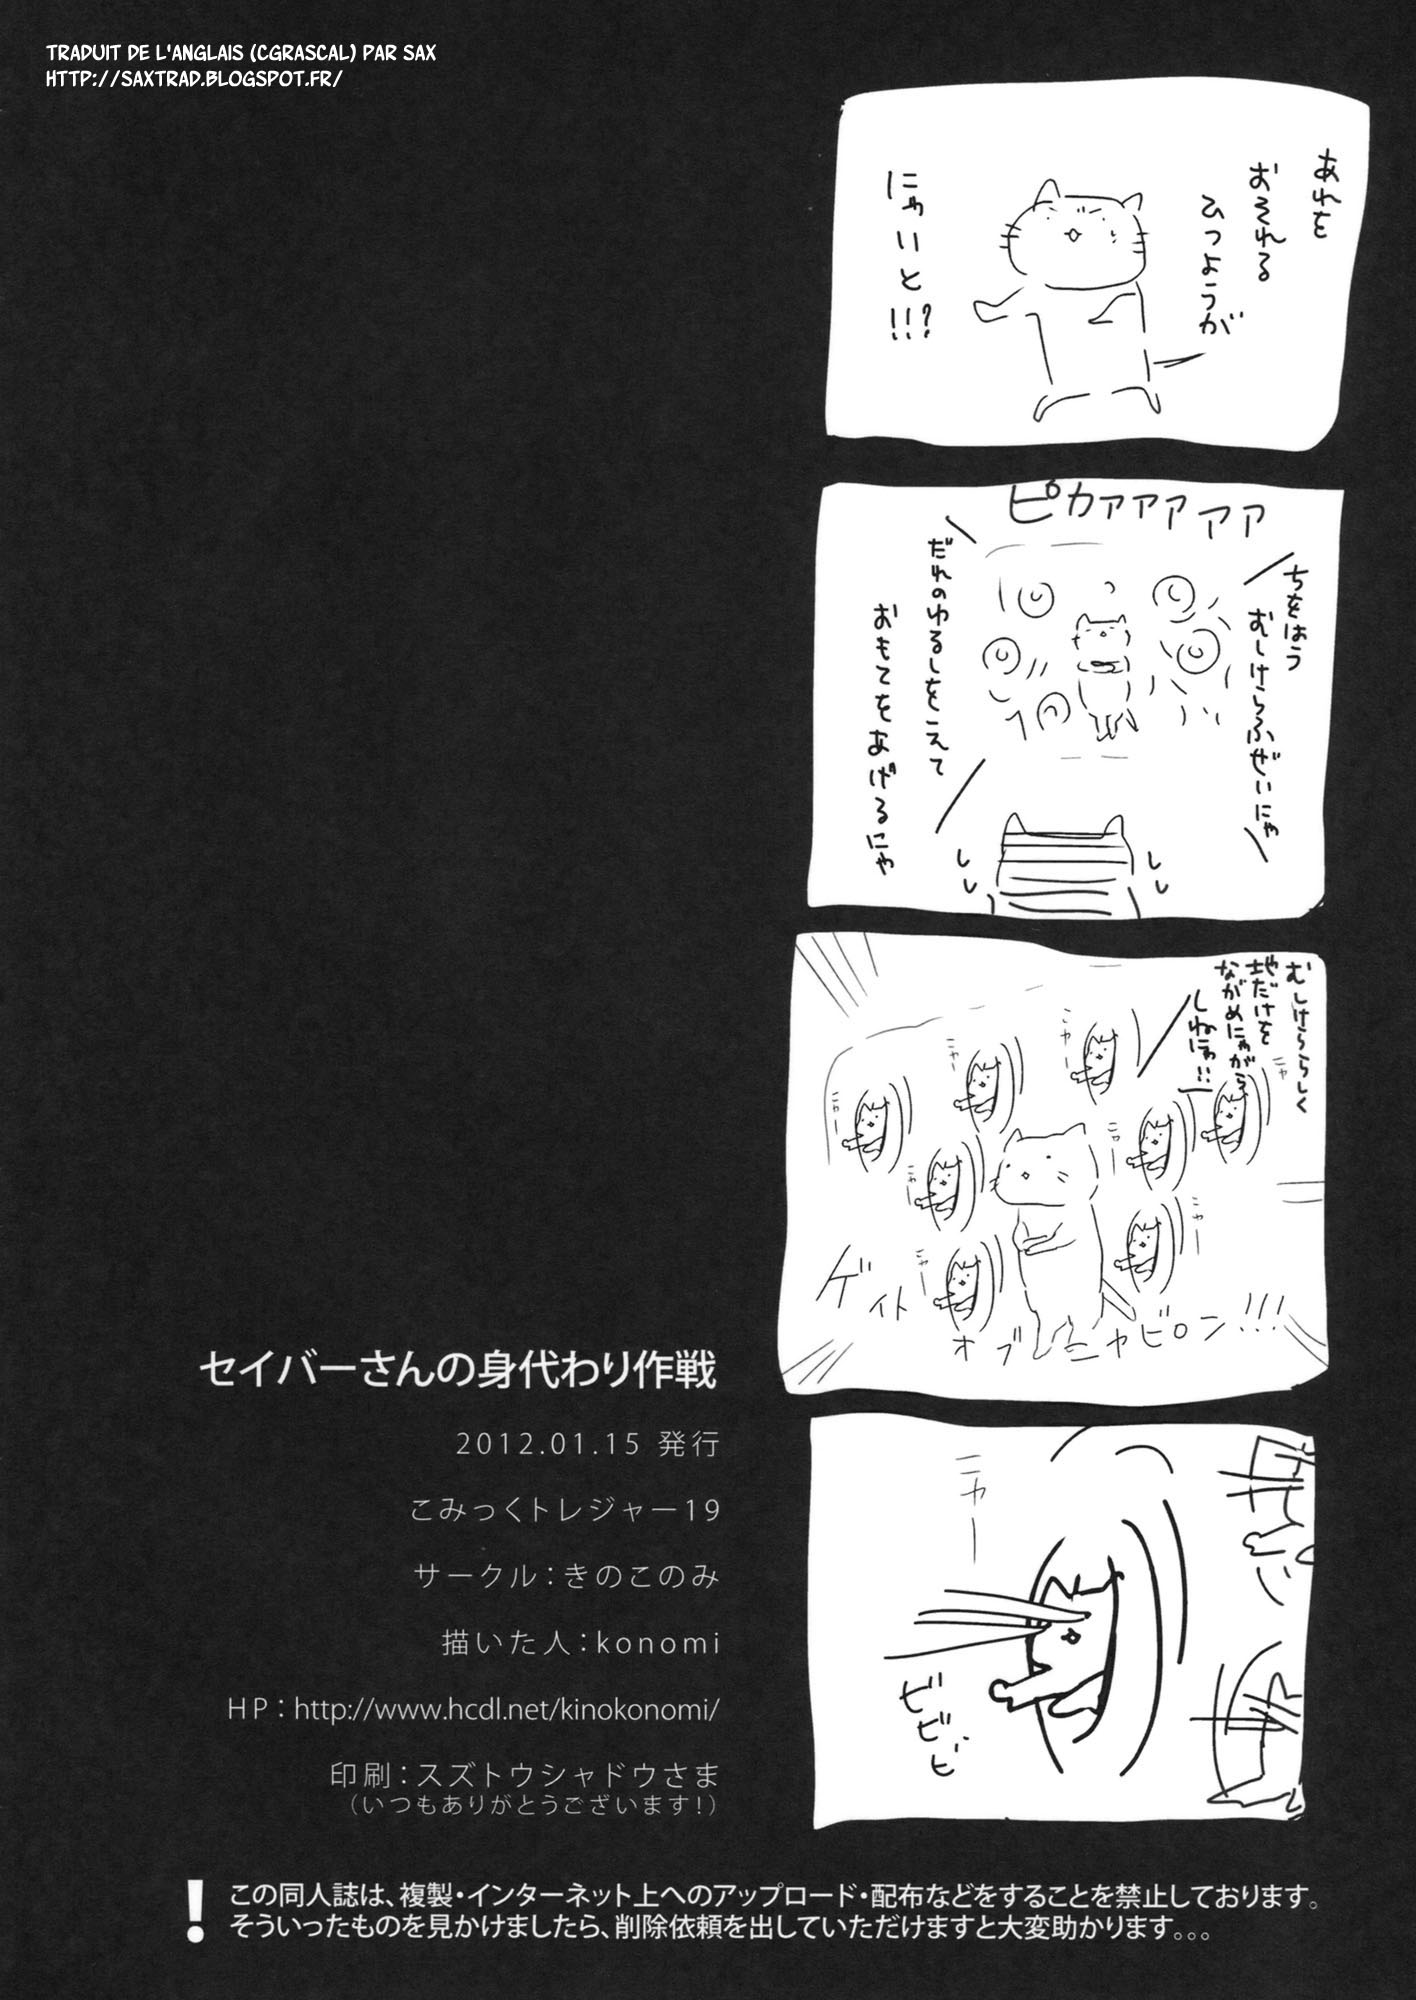 TRADUIT DE L'ANGLAIS (CGRASCAL) PAR SAX
HTTP://SAXTRAD.BLOGSPOT.FR/
あれを
おそれる
ひつようが
にゃいと!!?
ピカァァァァァ
ちをはう
むしけらふぜいにゃ
だれのゆるしをこえて
おもてをあげるにゃ
むしけららしく
地だけを
ながめにゃがら
しねにゃ!!
ニャー
ニャー
ニャー
ニャー
ニャー
ニャー
ニャー
ニャー
ゲイト
オブ
ニャビロン!!!
ニャー
ビビビ
セイバーさんの身代わり作戦
2012.01.15 発行
こみっくトレジャー19
サークル：きのこのみ
描いた人：konomi
HP：http://www.hcdl.net/kinokonomi/
印刷：スズトウシャドウさま
（いつもありがとうございます！）
！
この同人誌は、複製・インターネット上へのアップロード・配布などをすることを禁止しております。
そういったものを見かけましたら、削除依頼を出していただけますと大変助かります。。。